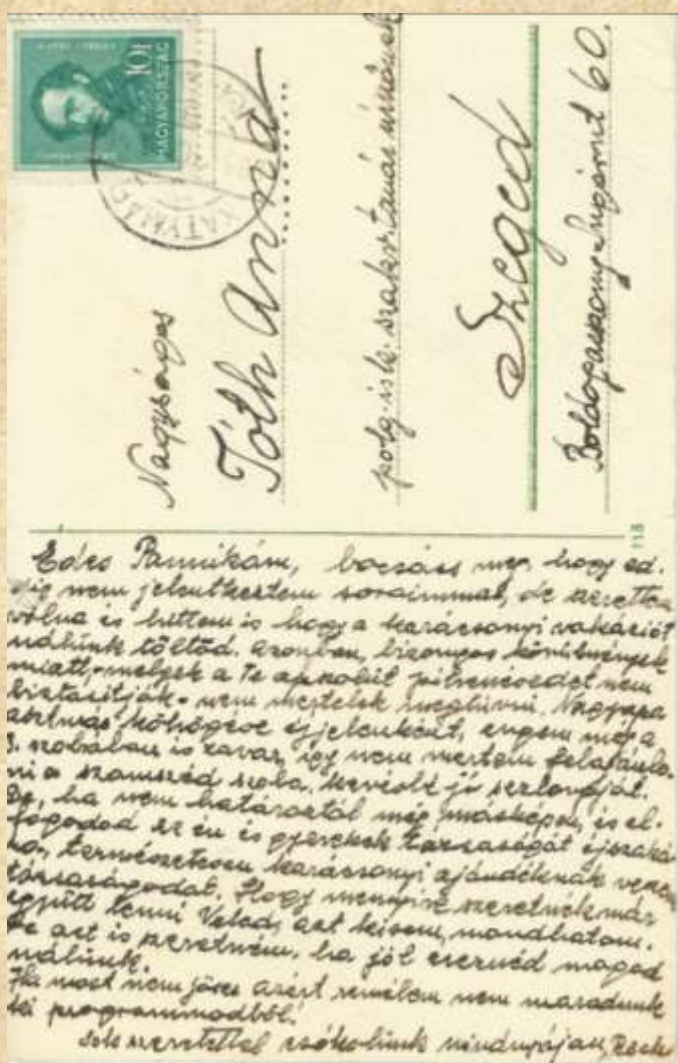 MAGYARORSZÁG
10f
KATYMÁR
Nagyságos
Tóth Anna
polg. isk. szakos tanárnőnek
Szeged
Boldogasszony sugárút 60.
118
Édes Pannikám, bocsáss meg, hogy ed-
dig nem jelentkeztem soraimmal, de szerettem
volna és hittem is hogy a karácsonyi vakációt
nálunk töltöd. Azonban, bizonyos körülmények
miatt, melyek a Te pihenésedet nem
biztosítják, nem mertelek meghívni. Nagyapa
asztmás köhögése éjjelenként, engem még a
3. szobában is zavar, így nem mertem felajánla-
ni a szomszéd szoba kevésbé jó sezlonját.
De, ha nem határoztál még másképen, és el-
fogadod az én és gyerekek társaságát éjszaká-
ra, természetesen karácsonyi ajándéknak veszem
társaságodat. Hogy mennyire szeretnék már
együtt lenni Veled, azt ki sem mondhatom.
De azt is szeretném, ha jól éreznéd magad
nálunk.
Ha most nem jössz azért remélem nem maradunk
ki programmodból!
Sok szeretettel csókolunk mindnyájan